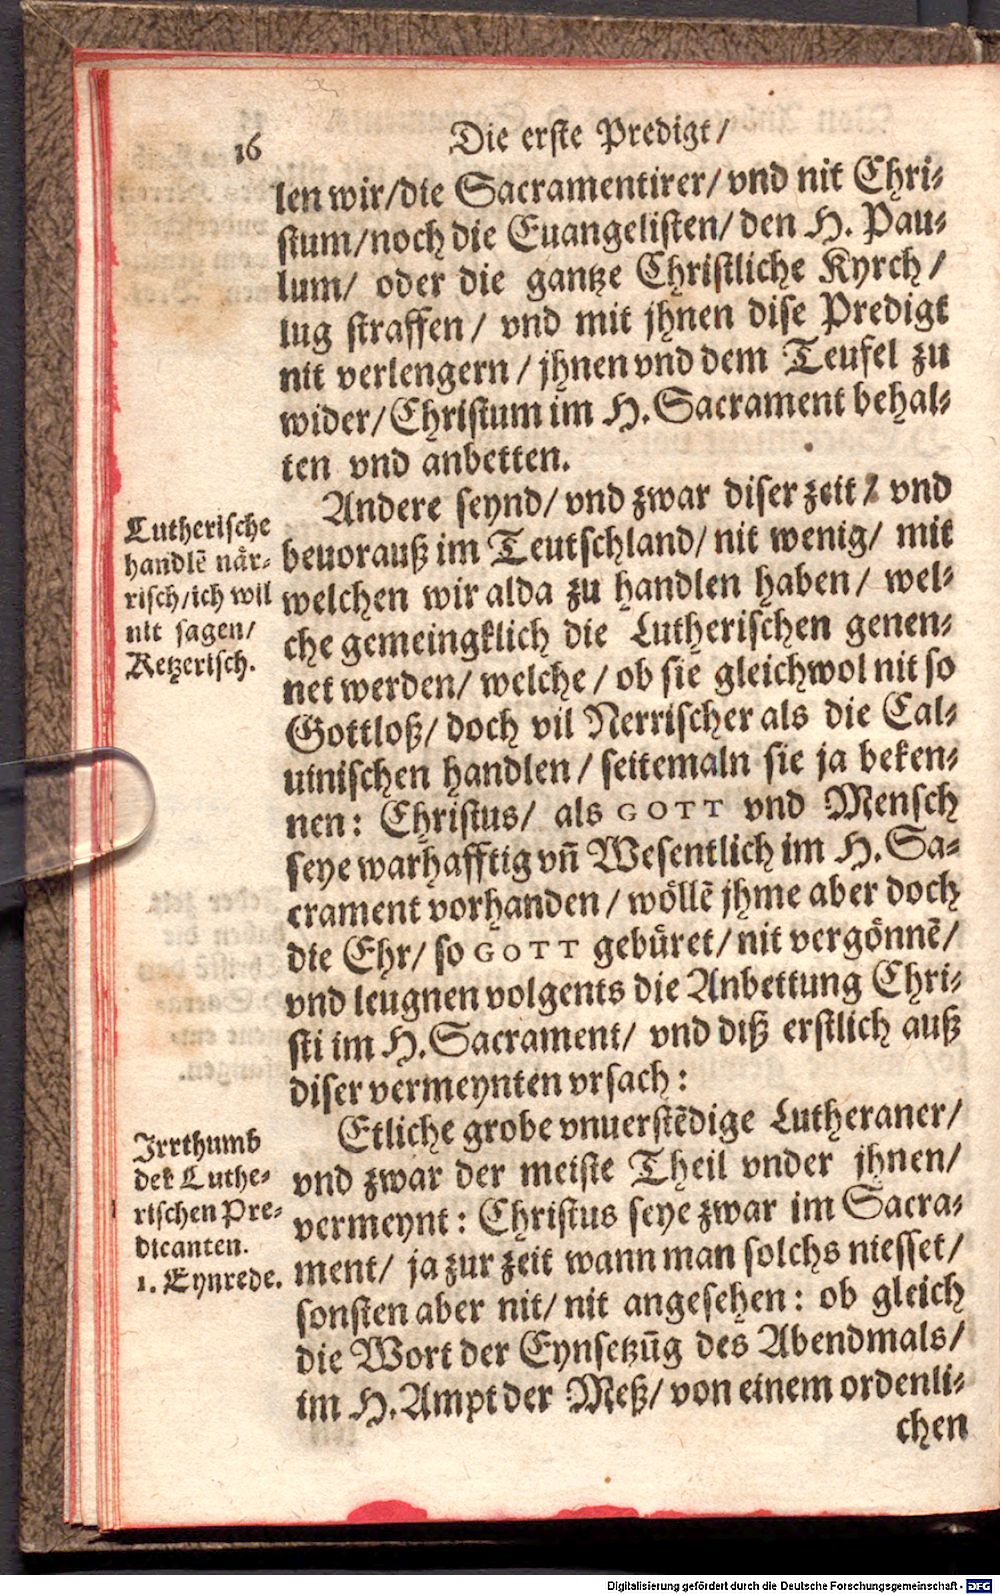 16
Die erste Predigt/
len wir/die Sacramentirer/vnd nit Chri-
stum/noch die Euangelisten/den H. Pau-
lum/ oder die gantze Christliche Kyrch/
lug straffen/ vnd mit jhnen dise Predigt
nit verlengern/jhnen vnd dem Teufel zu
wider/Christum im H. Sacrament behal-
ten vnd anbetten.
Andere seynd/vnd zwar diser zeit/ vnd
beuorauß im Teutschland/nit wenig/ mit
welchen wir alda zu handlen haben/ wel-
che gemeingklich die Lutherischen genen-
net werden/ welche/ob sie gleichwol nit so
Gottloß/doch vil Nerrischer als die Cal-
uinischen handlen/seitemaln sie ja beken-
nen: Christus/ als GOTT vnd Mensch
seye warhafftig vñ Wesentlich im H. Sa-
crament vorhanden/wöllẽ jhme aber doch
die Ehr/so GOTT gebüret/nit vergönnẽ/
vnd leugnen volgents die Anbettung Chri-
sti im H. Sacrament/ vnd diß erstlich auß
diser vermeynten vrsach:
Etliche grobe vnuerstẽdige Lutheraner/
vnd zwar der meiste Theil vnder jhnen/
vermeynt: Christus seye zwar im Sacra-
ment/ ja zur zeit wann man solchs niesset/
sonsten aber nit/nit angesehen: ob gleich
die Wort der Eynsetzũg des Abendmals/
im H. Ampt der Meß/von einem ordenli-
chen
Lutherische
handlẽ när-
risch/ich wil
nit sagen/
Ketzerisch.
Irrthumb
der Luthe-
rischen Pre-
dicanten.
1. Eynrede.
Digitalisierung gefördert durch die Deutsche Forschungsgemeinschaft - DFG